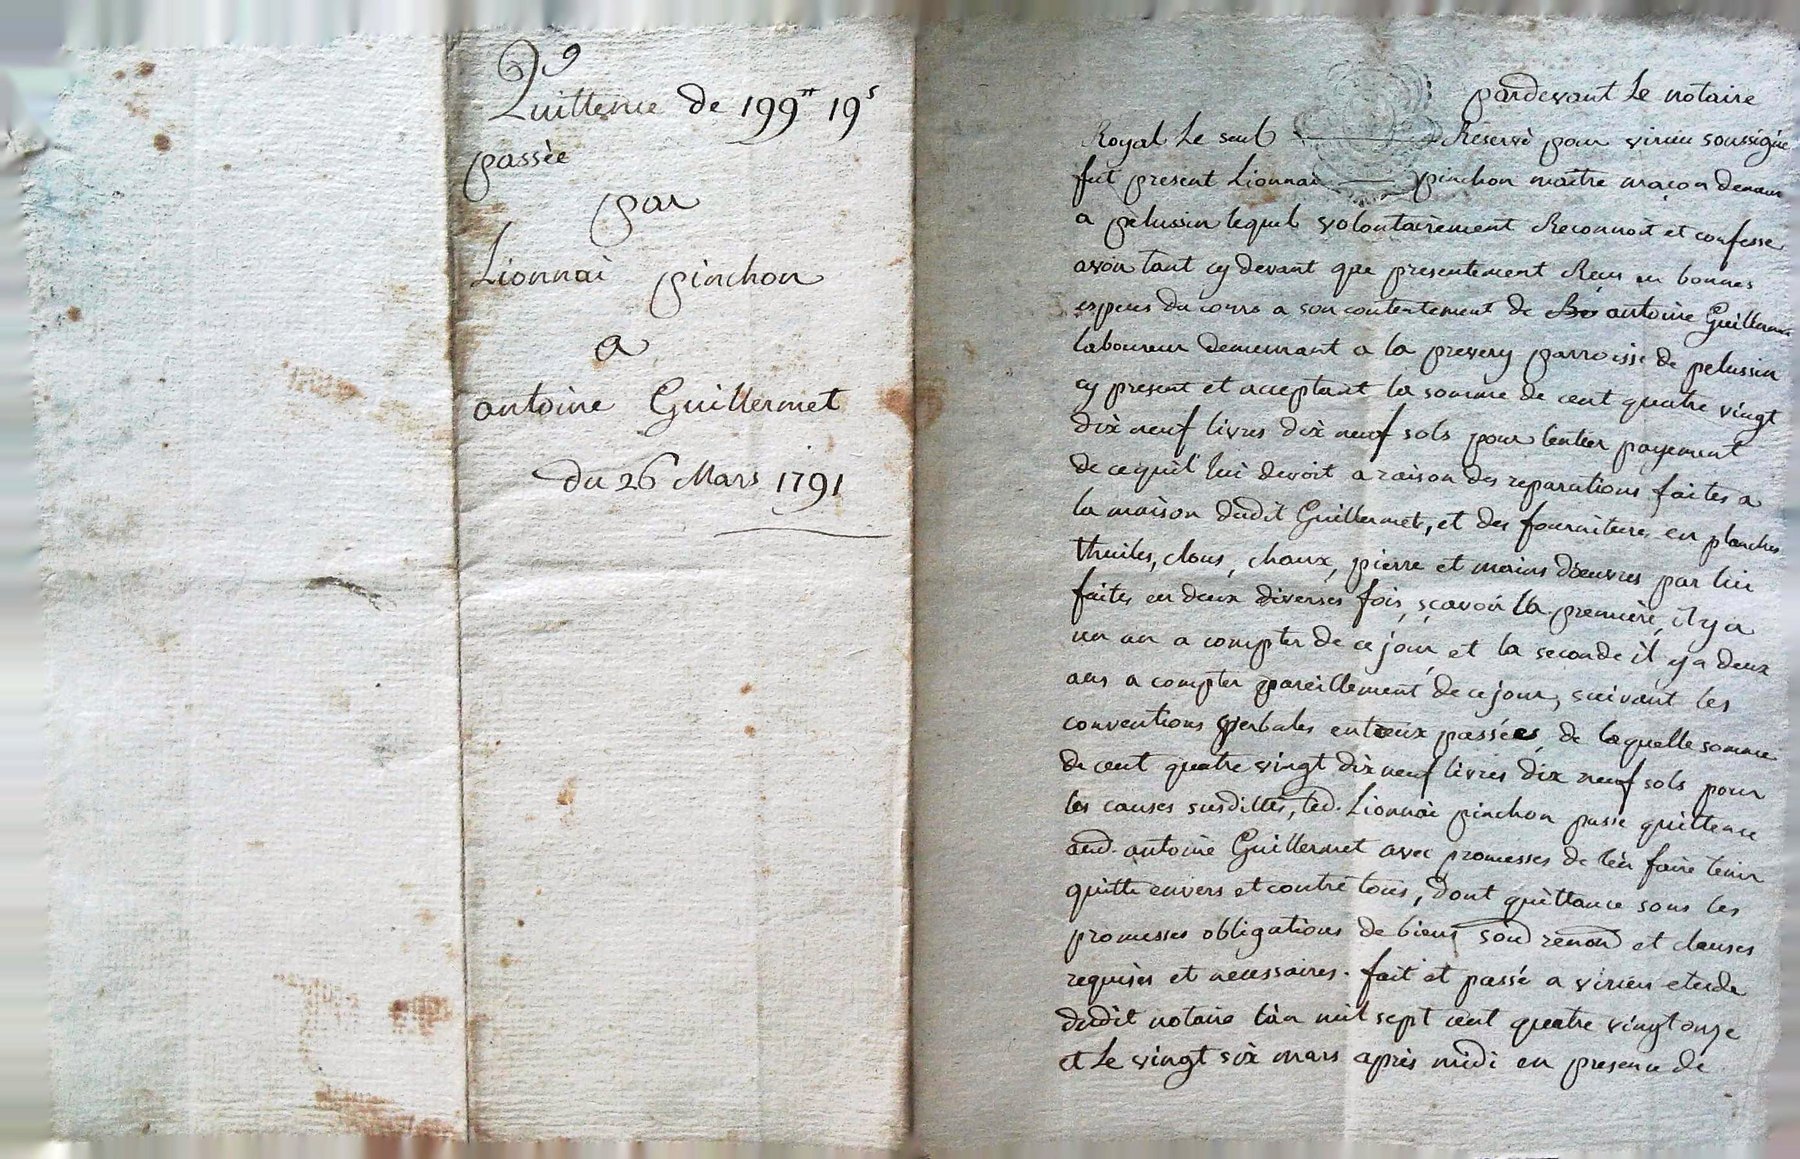 Quittence de 199# 19s
passée
par
Lionnai pinchon
a
antoine Guillermet
du 26 Mars 1791
pardevant Le notaire
Royal Le seul Réservé pour virieu soussigné
fut present Lionnai pinchon maitre maçon demeur
a pelussin lequel volontairement Reconnoit et confesse
avoir tant cy devant que presentement Reçus en bonnes
espeus du cours a son contentement de antoine Guillermet
laboureur demeurant a la parroisse de pelussin
cy present et acceptant la somme de cent quatre vingt
dix neuf livres dix neuf sols pour lentier payement
de cequil lui devoit a raison des reparations faites a
la maison dudit Guillermet, et des fournitures en planches
thuiles, clous, chaux, pierre et mains d'œuvres par lui
faites en deux diverses fois, sçavoir la première, il y a
un an a compter de ce jour et la seconde il y a deux
ans a compter pareillement de ce jour, suivant les
conventions verbales entreux passées, de laquelle somme
de cent quatre vingt dix neuf livres dix neuf sols pour
les causes susdittes, led. Lionnai pinchon passe quittence
aud. antoine Guillermet avec promesses de l'en faire tenir
quitte envers et contre tous, dont quittance sous les
promesses obligations de biens soud renon et clauses
requises et necessaires. fait et passé a virieu etude
dudit notaire l'an mil sept cent quatre vingt onze
et Le vingt six mars après midi en presence de